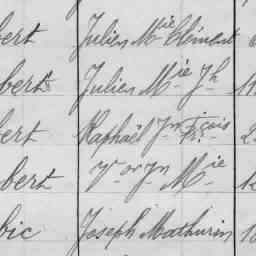 bert Julien Mie Clément
bert Julien Mie Jh
bert Raphaël Jn Fçois
bert Mie
bic Joseph Mathurin